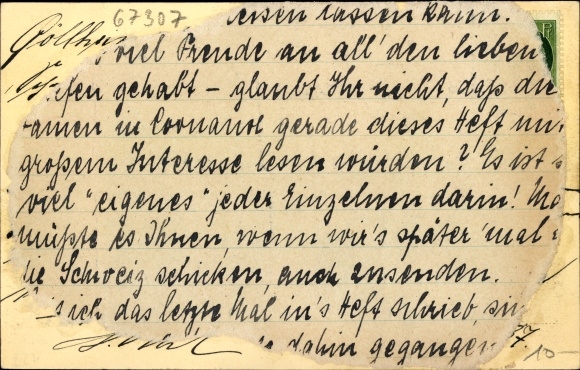 67307
lassen kann.
Göllh
viel Freude an all' den lieben
gehabt – glaubt Ihr nicht, daß die
in gerade dieses Heft mi
großem Interesse lesen würden? Es ist
viel "eigenes" jeder Einzelnen darin! Ma
müßte es Ihnen, wenn wir's später 'mal
die Schweiz schicken, auch zusenden.
sich das letzte Mal in's Heft schrieb, sin
dahin gegangen
10-